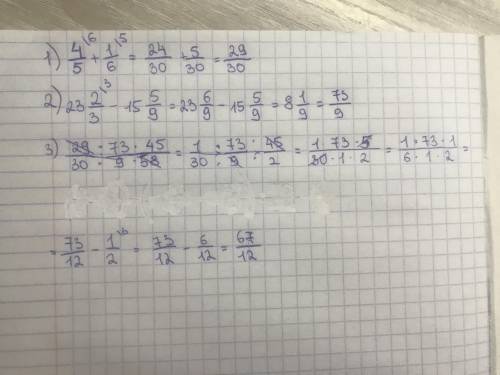 1) 4/5 \6 + 1/6 \5 = 24/30 + 5/30 = 29/30
2) 23 2/3 \3 - 15 5/9 = 23 6/9 - 15 5/9 = 8 1/9 = 73/9
3) 29 · 73 · 45 / 30 · 9 · 58 = 1 · 73 · 45 / 30 · 9 · 2 = 1 · 73 · 5 / 30 · 1 · 2 = 1 · 73 · 1 / 6 · 1 · 2 =
= 73/12 - 1/2 \6 = 73/12 - 6/12 = 67/12